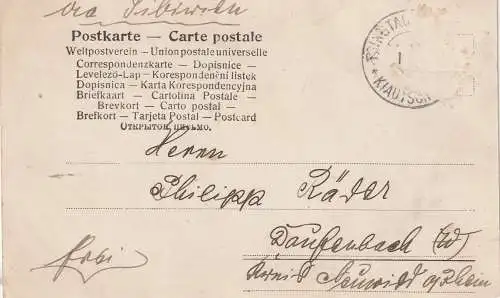 via Sibirien
Postkarte — Carte postale
Weltpostverein — Union postale universelle
Correspondenzkarte — Dopisnice —
Levelező-Lap — Korespondenční listek
Dopisnica — Karta Korespondencyjna
Briefkaart — Cartolina Postale —
Brevkort — Carto postal —
Brefkort — Tarjeta Postal — Postcard
Открытое письмо.
TSINGTAU
1
* KIAUTSCH
Herrn
Philipp Räder
Daufenbach (W)
Kreis Neuwied a/Rhein